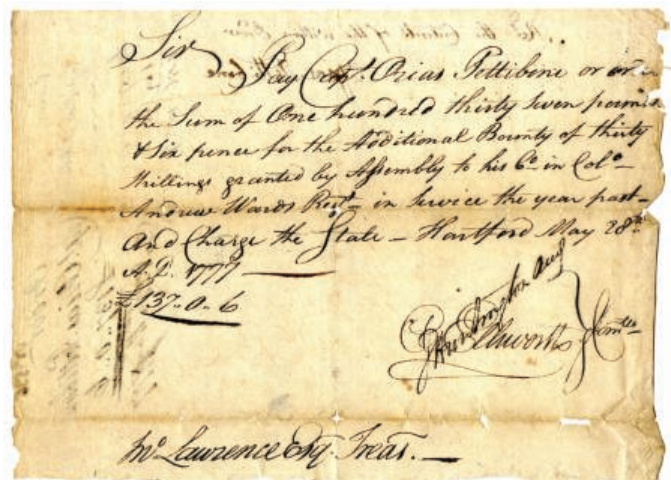 Sir
Pay Capt. Ozias Pettibone or order
the Sum of One hundred thirty Seven pounds
& Six pence for the Additional Bounty of thirty
Shillings granted by Assembly to his Co. in Colo.
Andrew Wards Regt. in Service the year past
And Charge the State – Hartford May 28th
A.D. 1777
£137.0.6
Ellsworth } Comtee
Jno. Lawrence Esq. Treas.